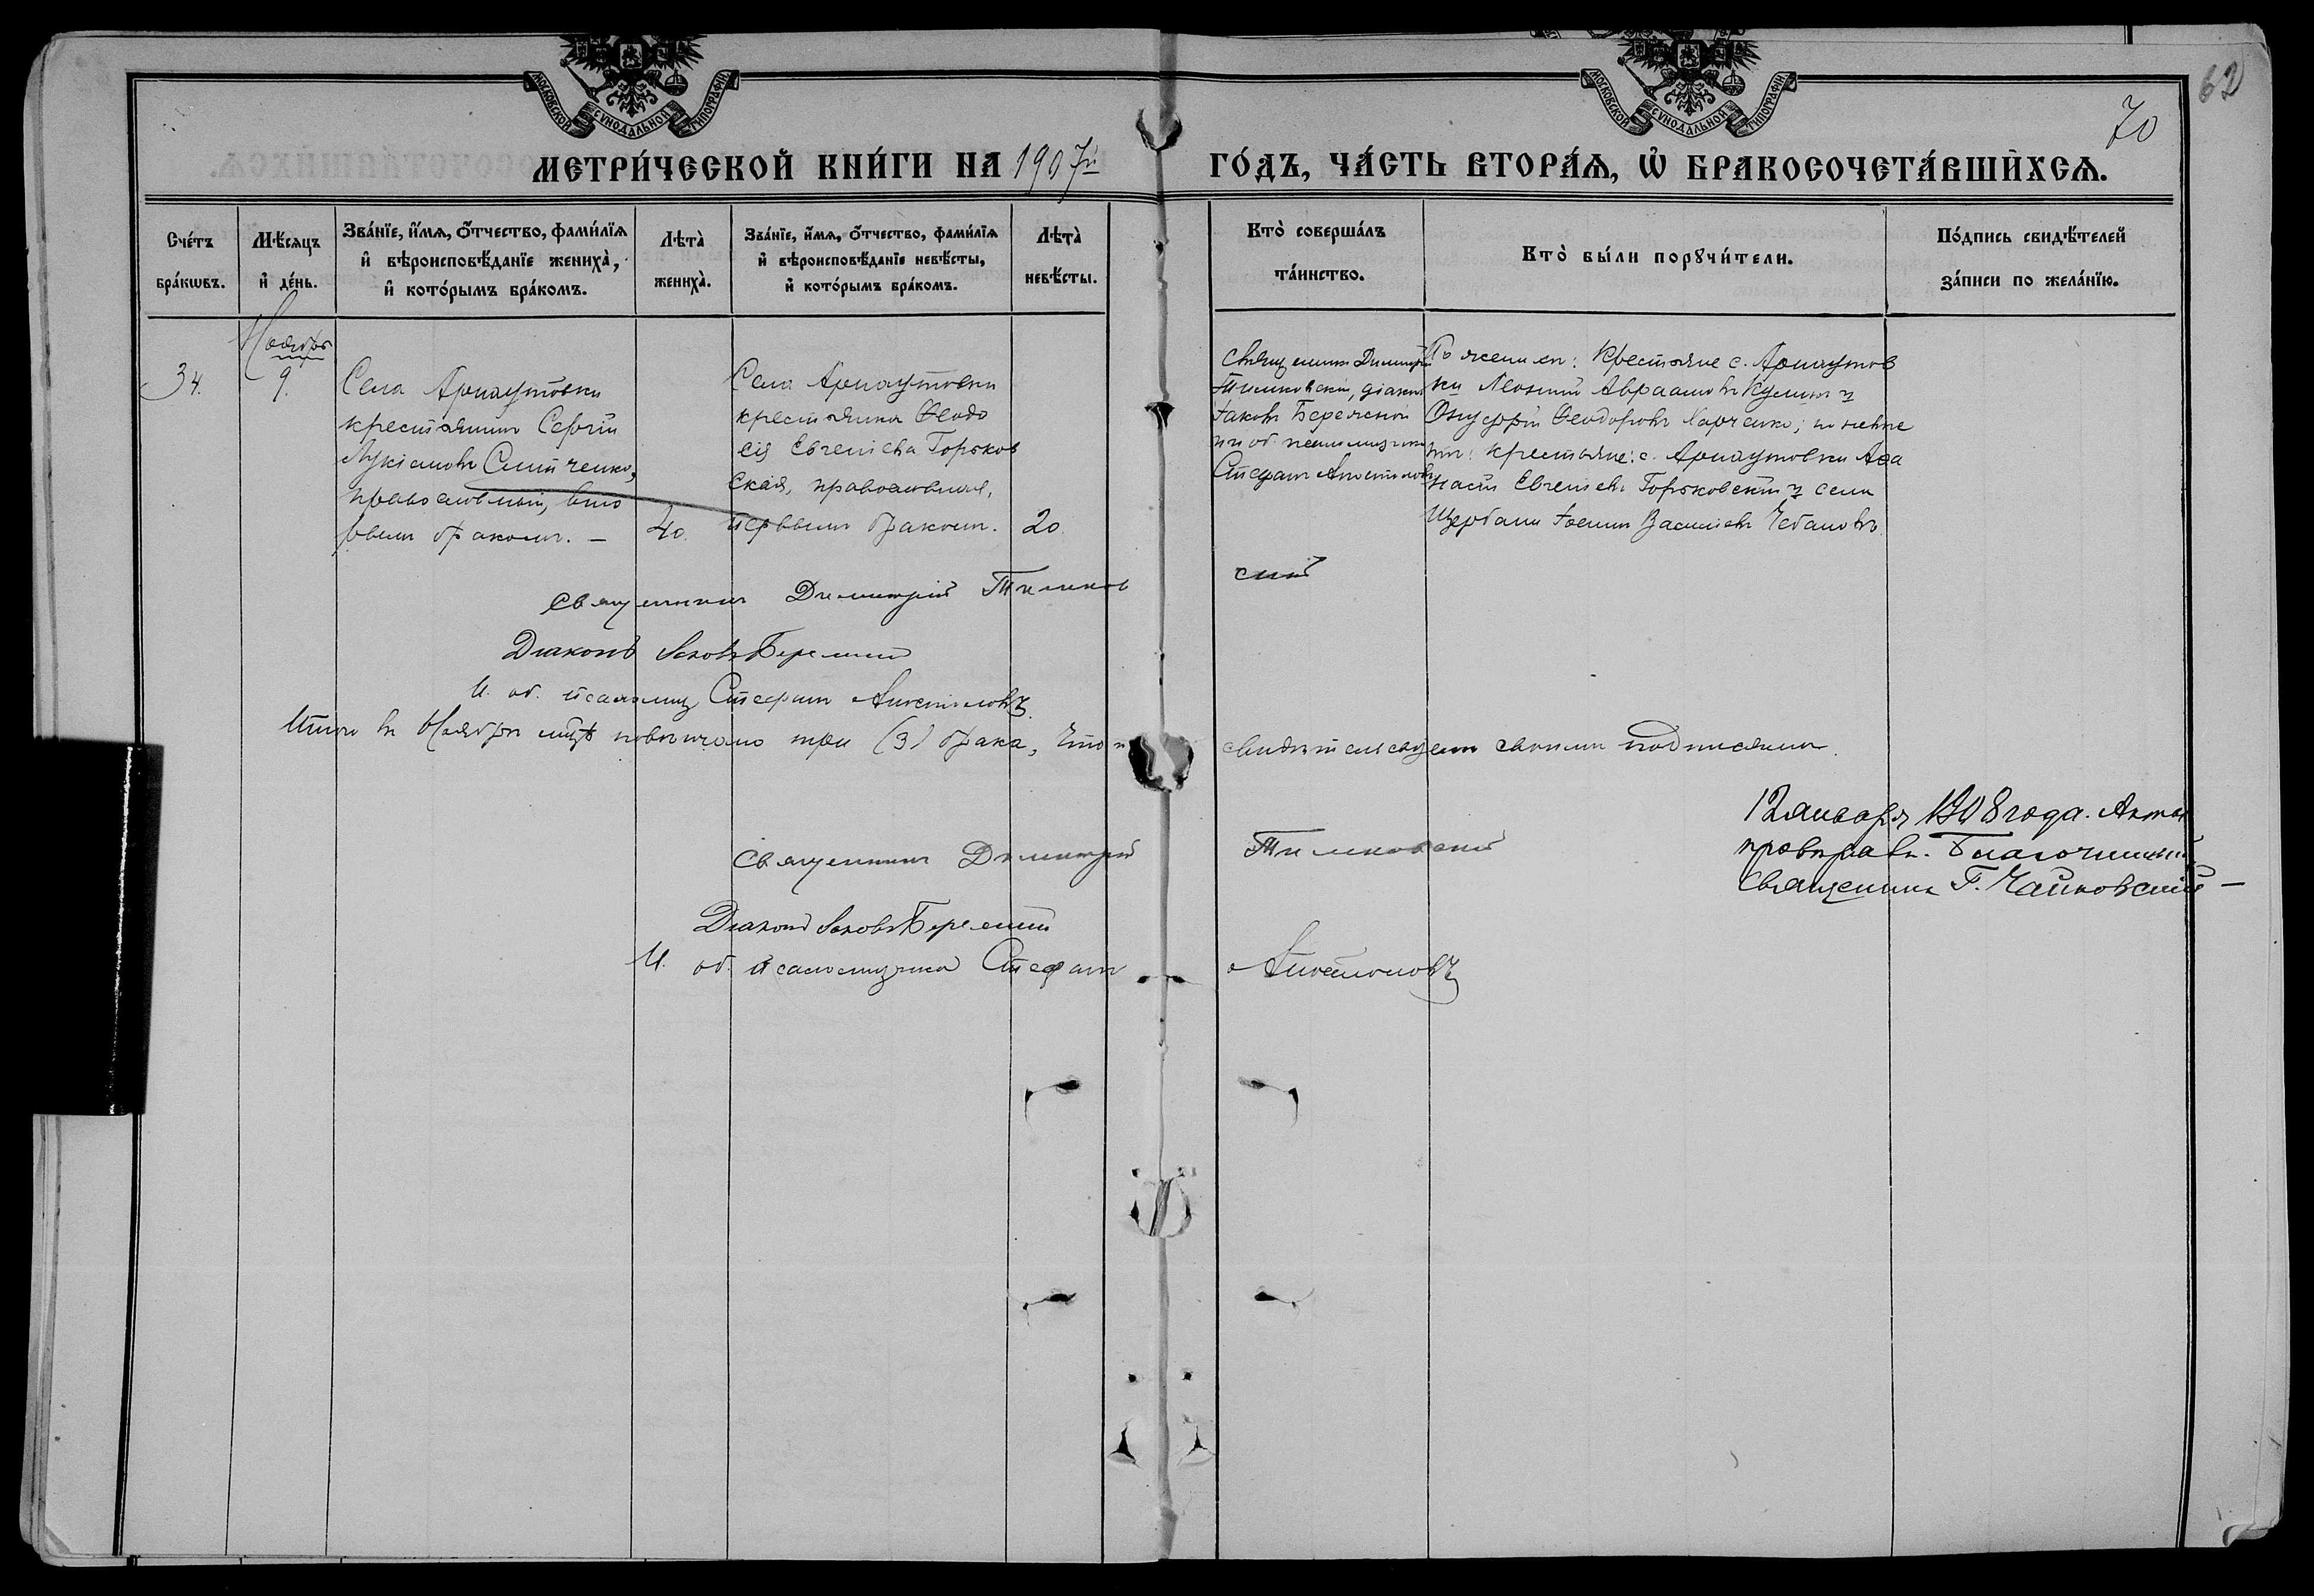 62
70
МОСКОВСКОЙ СѴНОДАЛЬНОЙ ТИПОГРАФІИ
МОСКОВСКОЙ СѴНОДАЛЬНОЙ ТИПОГРАФІИ
МЕТРИ́ЧЕСКОЙ КНИ́ГИ НА 1907й
ГО́ДЪ, ЧА́СТЬ ВТОРА́Ѧ, Ѡ҆ БРАКОСОЧЕТА́ВШИХСѦ.
Сче́тъ
бра́кѡвъ.
Мѣ́сѧцъ
и҆ де́нь.
Зва́нїе, и҆́мѧ, ѻ҆́тчество, фами́лїѧ
и҆ вѣроисповѣ́данїе жениха̀,
и҆ кото́рымъ бра́комъ.
Лѣта̀
жениха̀.
Зва́нїе, и҆́мѧ, ѻ҆́тчество, фами́лїѧ
и҆ вѣроисповѣ́данїе невѣ́сты,
и҆ кото́рымъ бра́комъ.
Лѣта̀
невѣ́сты.
Кто̀ соверша́лъ
та́инство.
Кто̀ бы́ли порꙋчи́тели.
По́дпись свидѣ́телей
за́писи по жела́нїю.
Ноябрь
34.
9.
Села Арнаутовки
крестьянинъ Сергій
Лукіановъ Снитченко,
православный, вто
рымъ бракомъ. —
40.
Села Арнаутовки
крестьянка Ѳеодо
сія Евгеніева Горьков
ская, православная,
первымъ бракомъ.
20.
Священникъ Димитрій
Тимковскій, діаконъ
Іаковъ Бережной
и и. об. псаломщика
Стефанъ Апостоловъ
По женихѣ: Крестьяне с. Арнаутов
ки Леонтій Авраамовъ Кулик и
Онуфрій Ѳеодоровъ Харченко; по невѣс
тѣ: крестьяне: с. Арнаутовки Аѳа
насій Евгеніевъ Горьковскій и села
Щербани Іоаннъ Василіевъ Чебановъ.
Священникъ Димитрій Тимков
скій
Діаконъ Іаковъ Бережной
И. об. псаломщ Стефанъ Апостоловъ.
Итого въ Ноябрѣ мцѣ повѣнчано три (3) брака, что и
свидѣтельствуемъ своими подписями.
12 января 1908 года. Акты
провѣрялъ. Благочинный,
Священникъ Г. Чайковскій —
Священникъ Димитрій
Тимковскій
Діаконъ Іаковъ Бережной
И. об. псаломщика Стефанъ
Апостоловъ